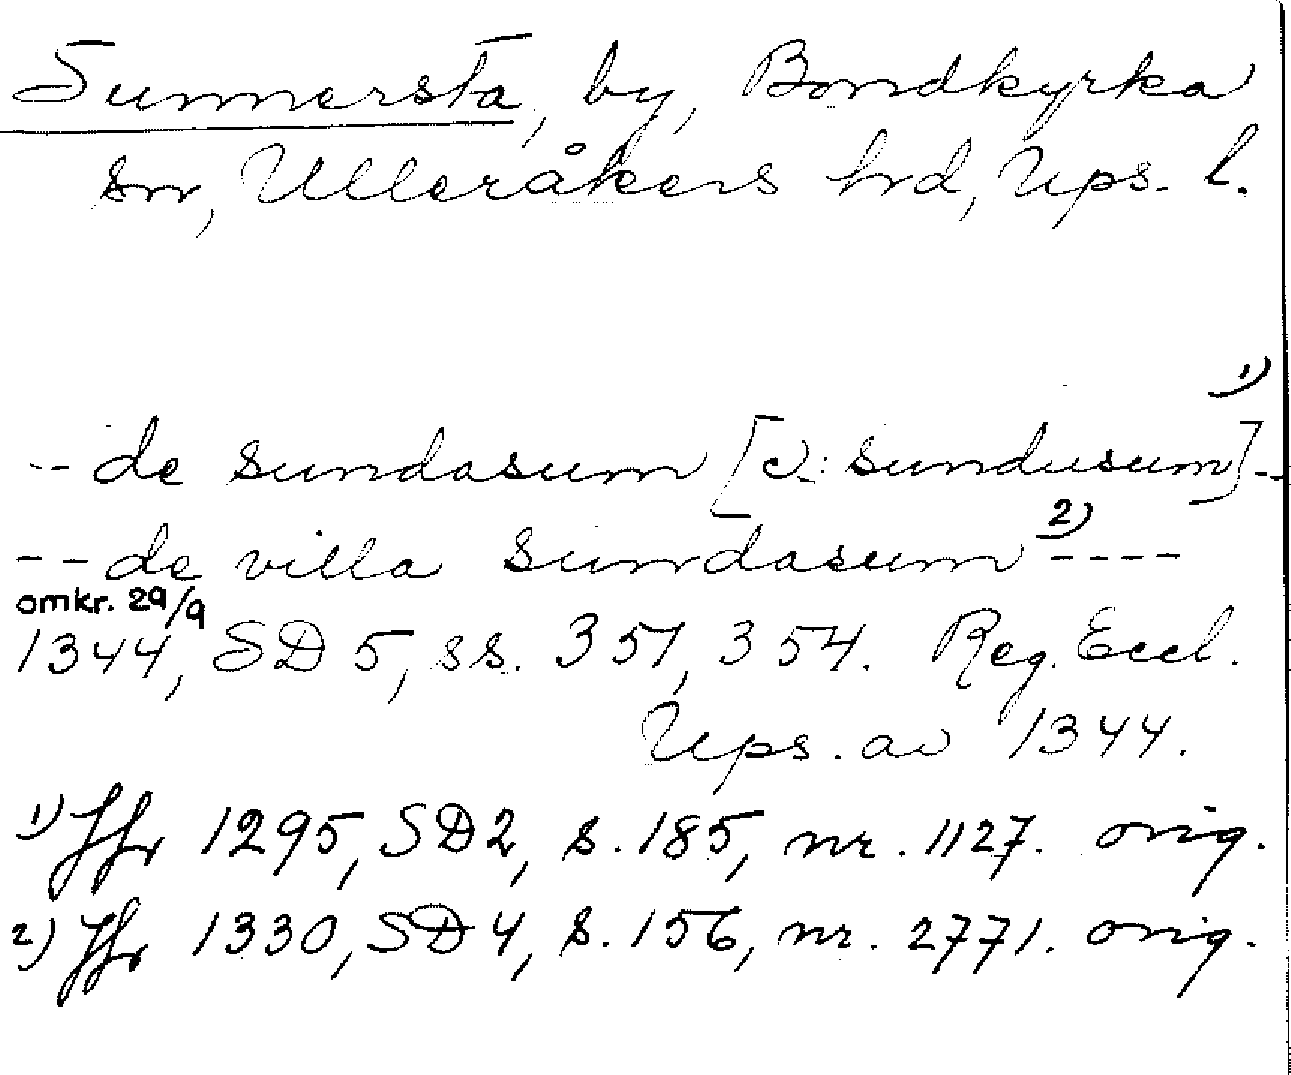 Sunnersta, by, Bondkyrka
sn, Ulleråkers hrd, Ups. l.
-- de sundasum [ɔ: sundusum] 1) --
-- de villa sundasum 2) ----
omkr. 29/9
1344, SD 5, ss. 351, 354. Reg. Eccl.
Ups. av 1344.
1) Jfr 1295, SD 2, s. 185, nr. 1127. orig.
2) Jfr 1330, SD 4, s. 156, nr. 2771. orig.